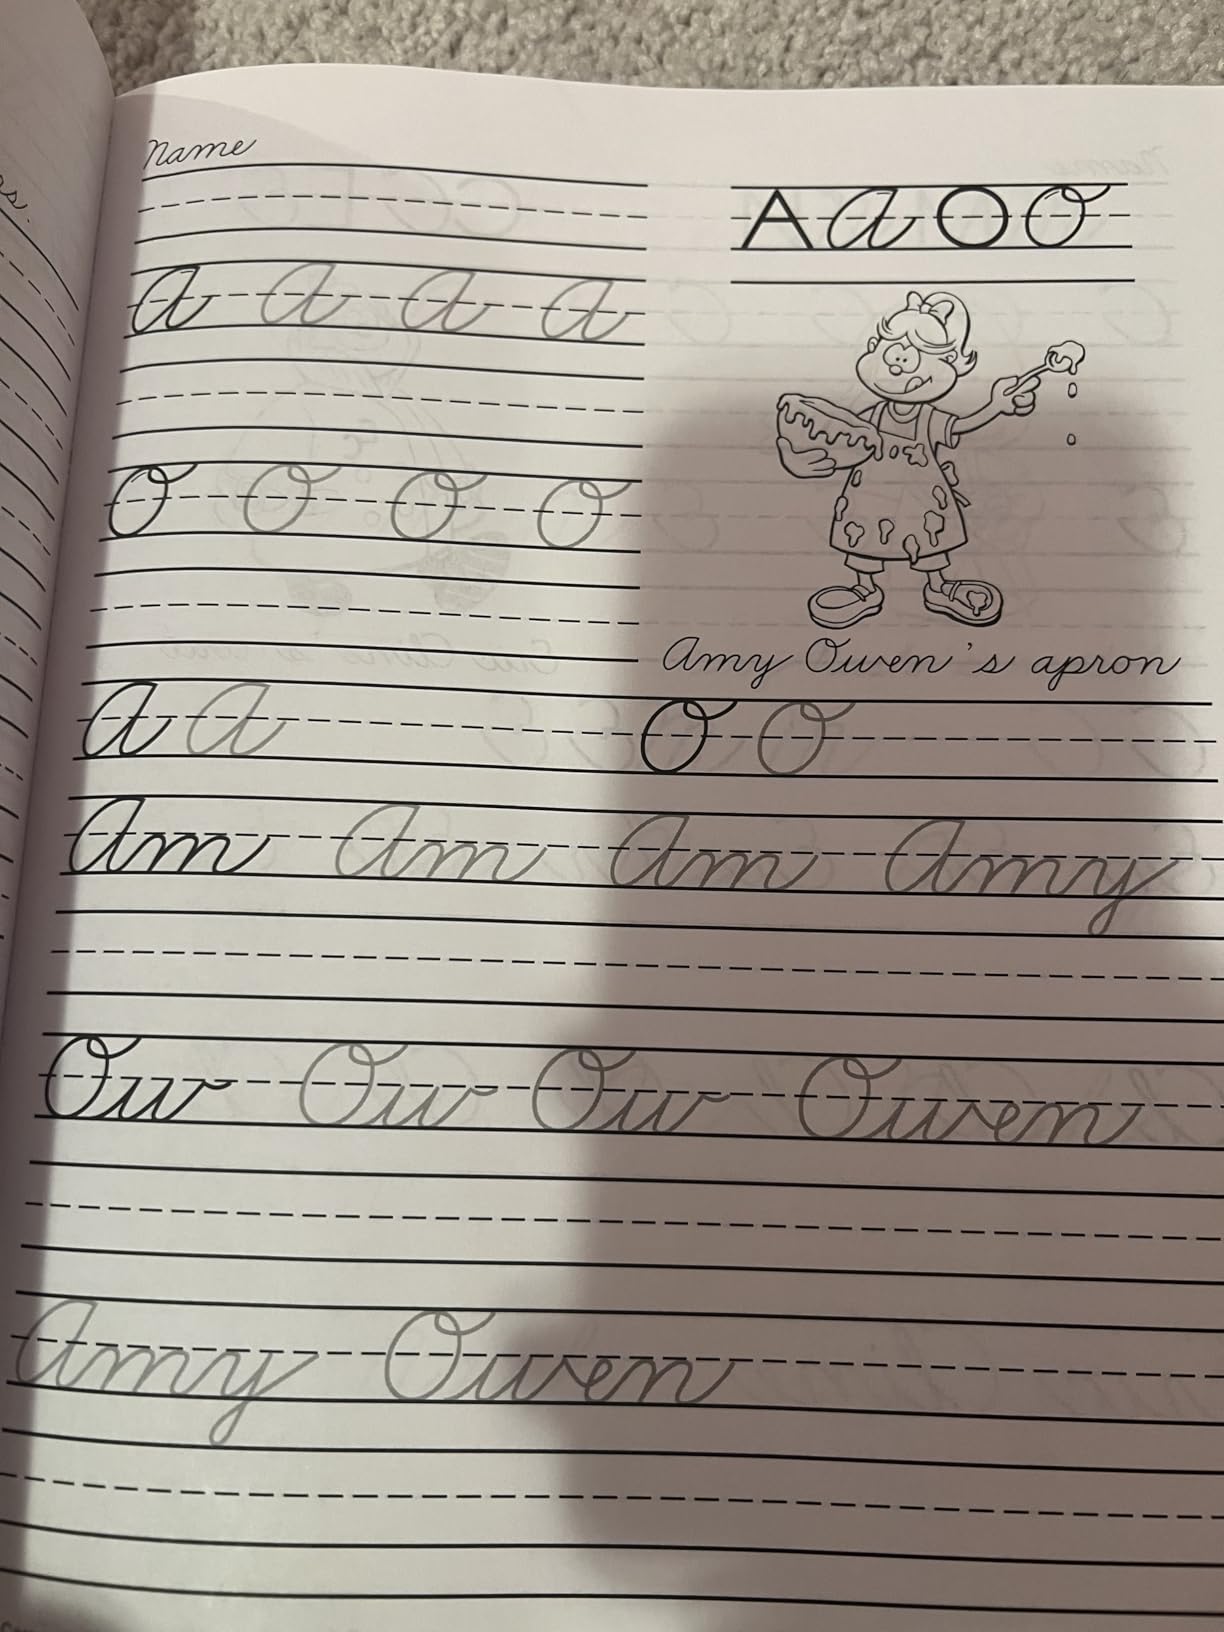 Name
A A O O
A A A A
O O O O
Amy Owen's apron
A A O O
Am Am Am Amy
Ow Ow Ow Owen
Amy Owen